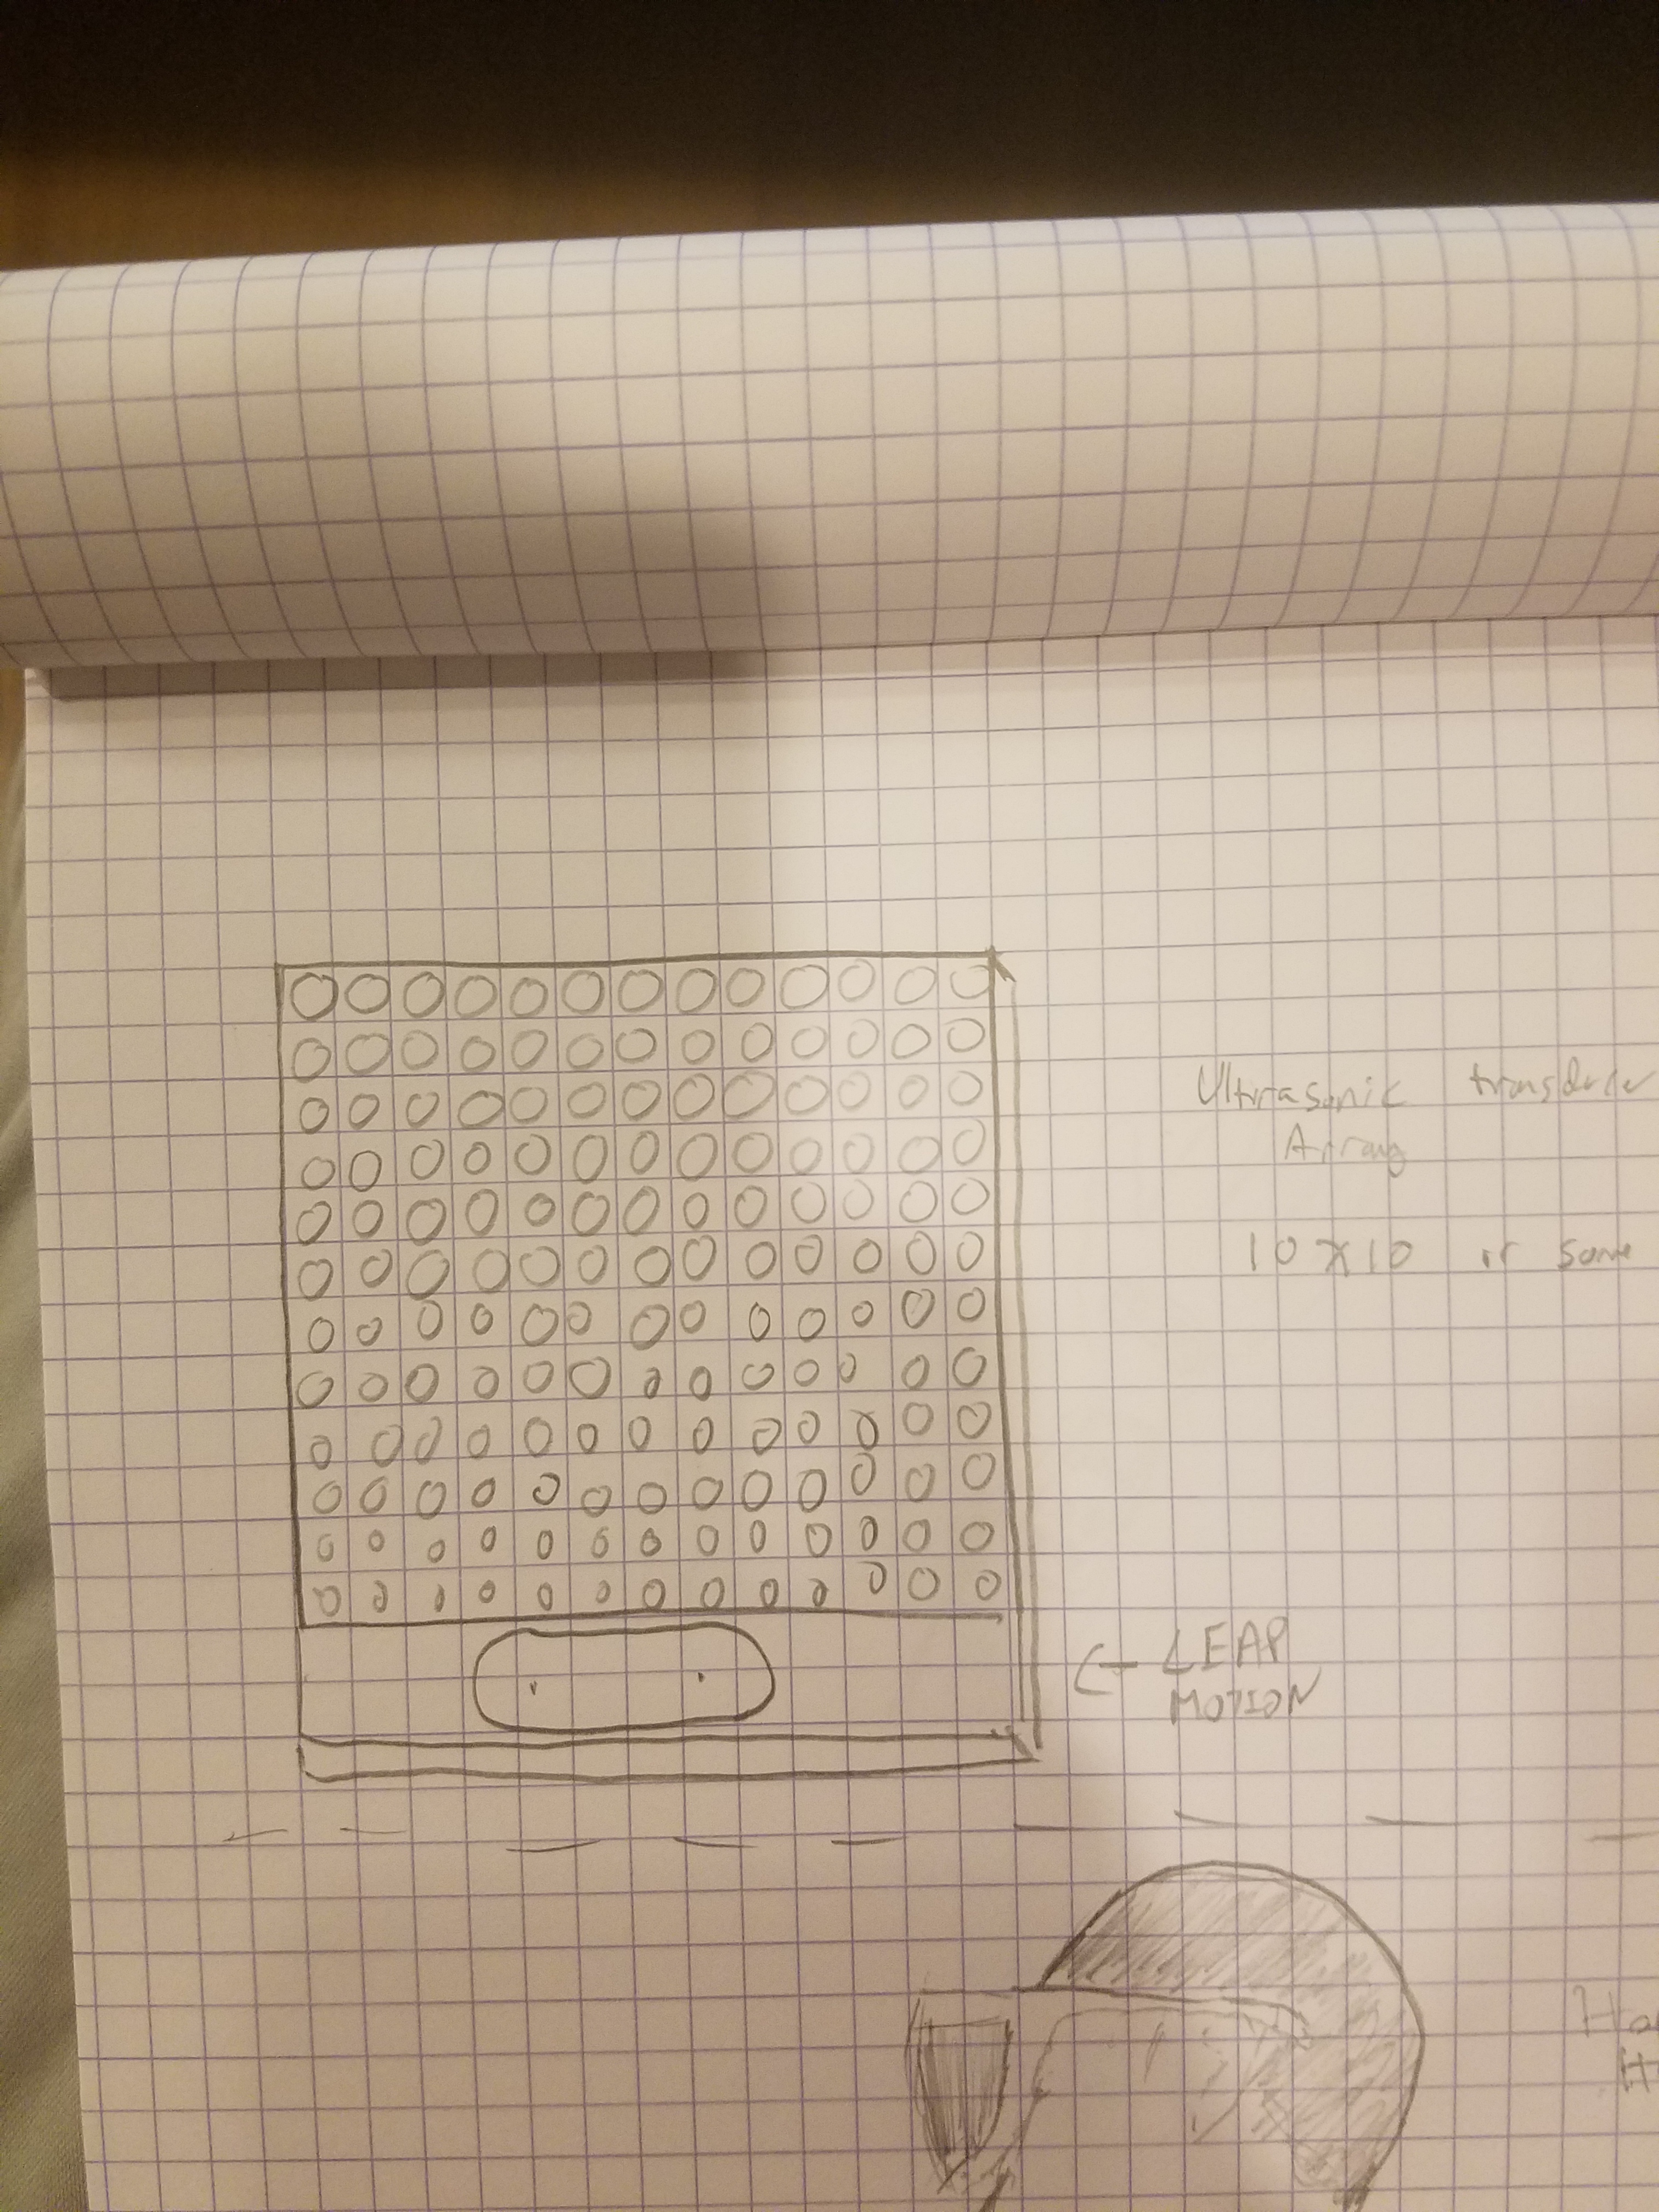 Ultrasonic transducer
Array
10 X 10 or some
← LEAP
MOTION